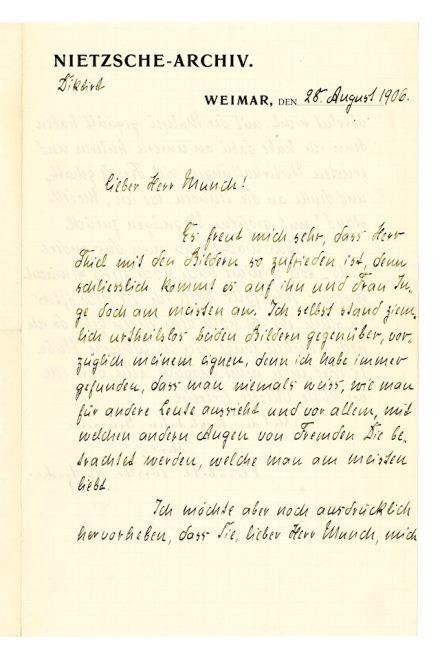 NIETZSCHE-ARCHIV.
Diktirt
WEIMAR, DEN 28. August 1906.
Lieber Herr Munch!
Es freut mich sehr, dass Herr
Thiel mit den Bildern so zufrieden ist, denn
schliesslich kommt es auf ihn und Frau In-
ge doch am meisten an. Ich selbst stand ziem-
lich urtheilslos beiden Bildern gegenüber, vor-
züglich meinem eignen, denn ich habe immer
gefunden, dass man niemals weiss, wie man
für andere Leute aussieht und vor allem, mit
welchen andern Augen von Fremden Die be-
trachtet werden, welche man am meisten
liebt.
Ich möchte aber noch ausdrücklich
hervorheben, dass Sie, lieber Herr Munch, mich